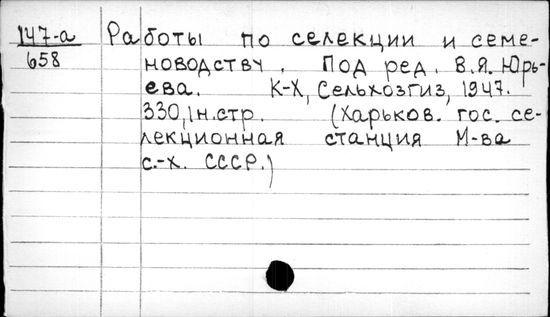 147-а Работы по селекции и семе-
658 новодству. Под ред. В.Я. Юрь-
ева. К-Х, Сельхозгиз, 1947.
330, 1н.стр. (Харьков. гос. се-
лекционная станция М-ва
с.-х. СССР.)